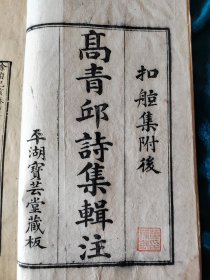 扣舷集附後
高青邱詩集輯注
平湖寶芸堂藏板